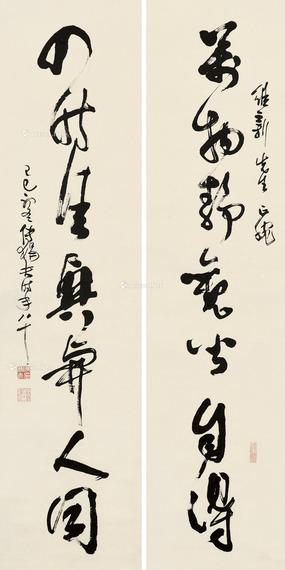 維新先生正
萬物靜觀皆自得
四時佳興與人同
己巳初冬書時年八十